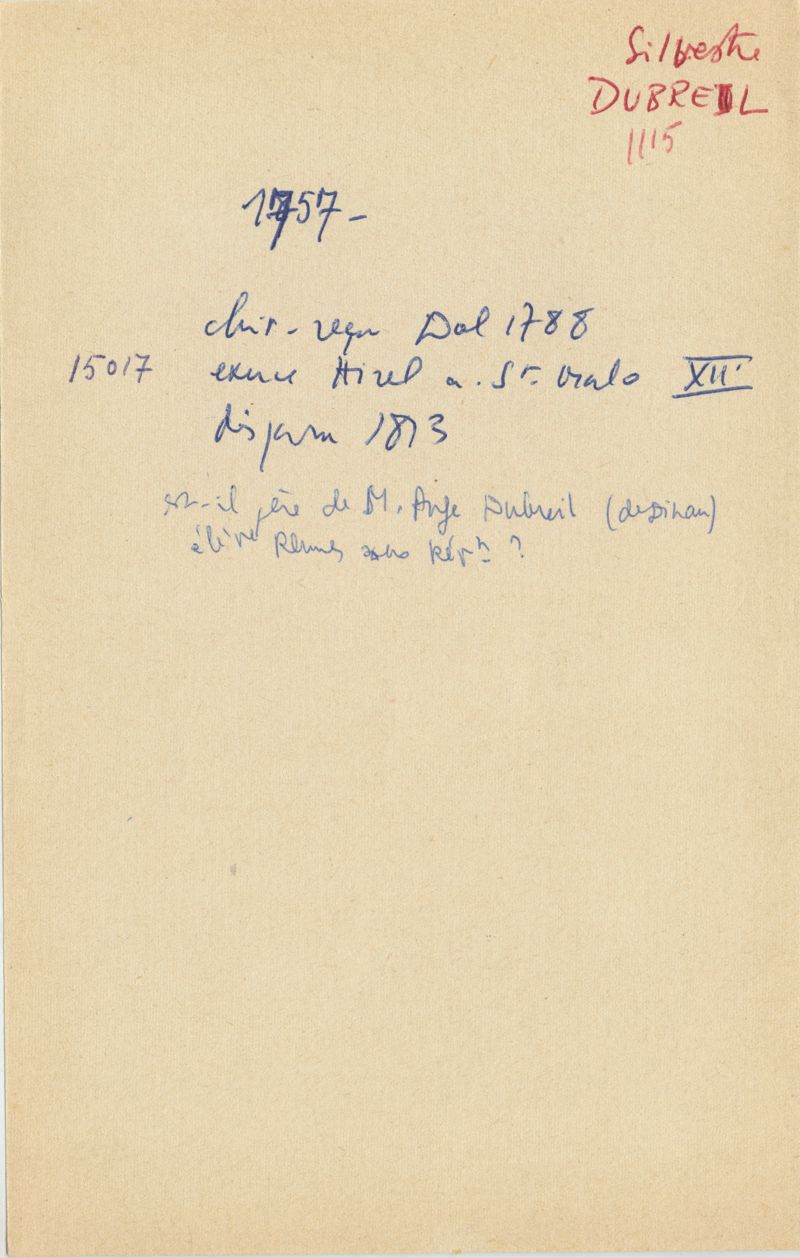 Silvestre
DUBREIL
1115
1757 -
chir - reçu Dol 1788
15017 exerce Hirel a. St. Malo XII
disparu 1813
est-il père de M. Ange Dubreil (de Dinan)
élève Rennes sous Rév.n ?